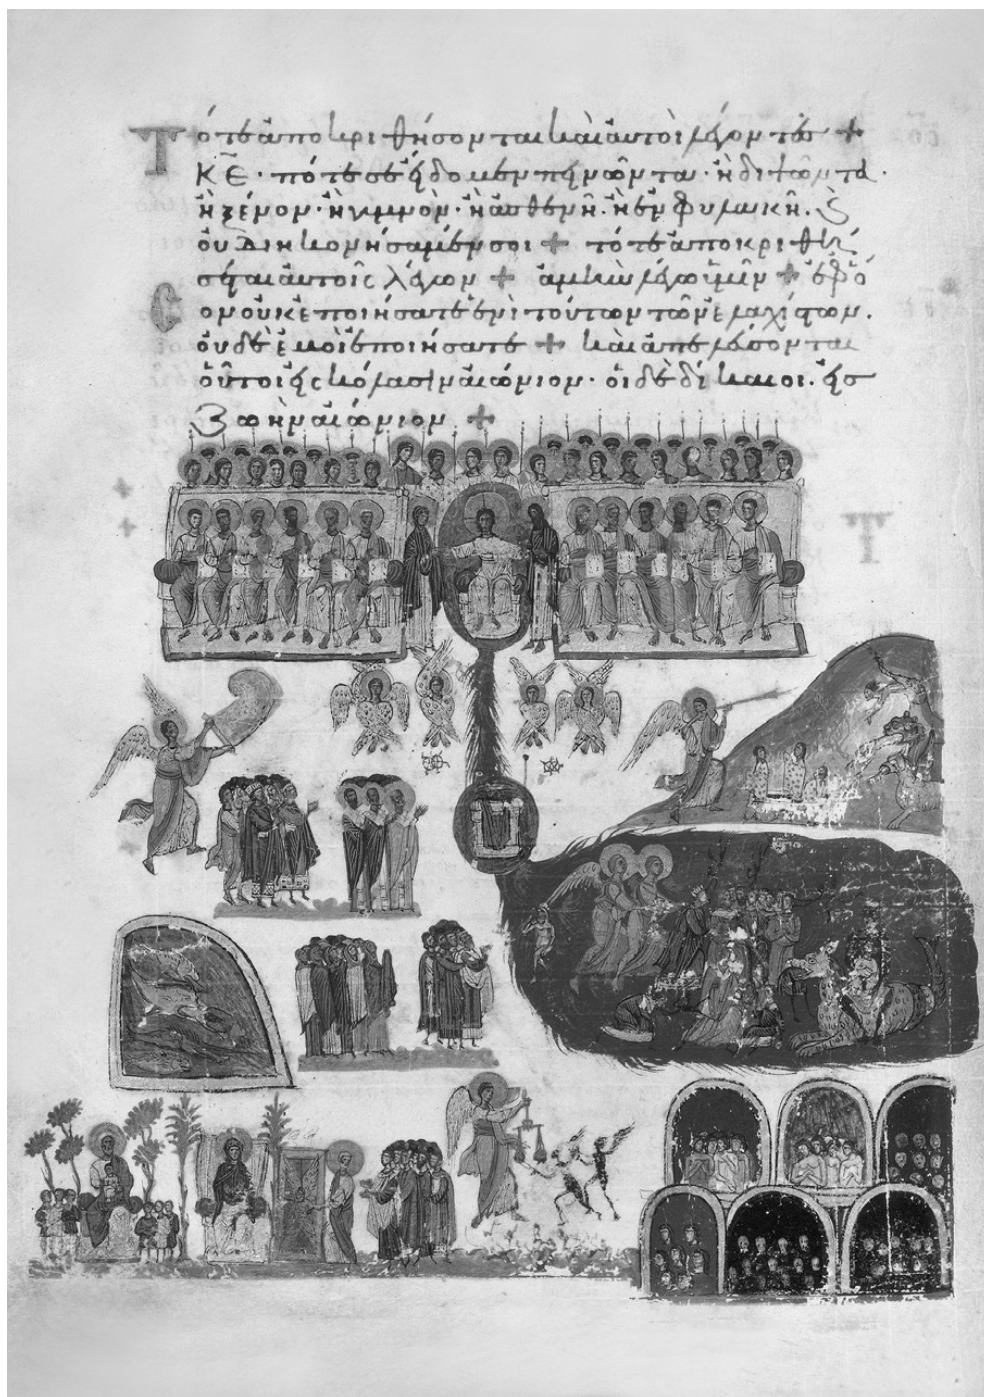 Τότε ἀποκριθήσονται καὶ αὐτοὶ λέγοντες +
Κ̅Ε̅· πότε σὲ εἴδομεν πεινῶντα· ἢ διψῶντα·
ἢ ξένον· ἢ γυμνὸν· ἢ ἀσθενῆ· ἢ ἐν φυλακῆ· ϗ
οὐ διηκονήσαμέν σοι + τότε ἀποκριθή
σεται αὐτοῖς λέγων + ἀμὴν λέγω ὑμῖν + ἐφ ὅ
σον οὐκ ἐποιήσατε ἑνὶ τούτων τῶν ἐλαχίστων.
οὐδὲ ἐμοὶ ἐποιήσατε + καὶ ἀπελεύσονται
οὗτοι εἰς κόλασιν αἰώνιον· οἱ δὲ δίκαιοι. εἰσ
ζωὴν αἰώνιον +